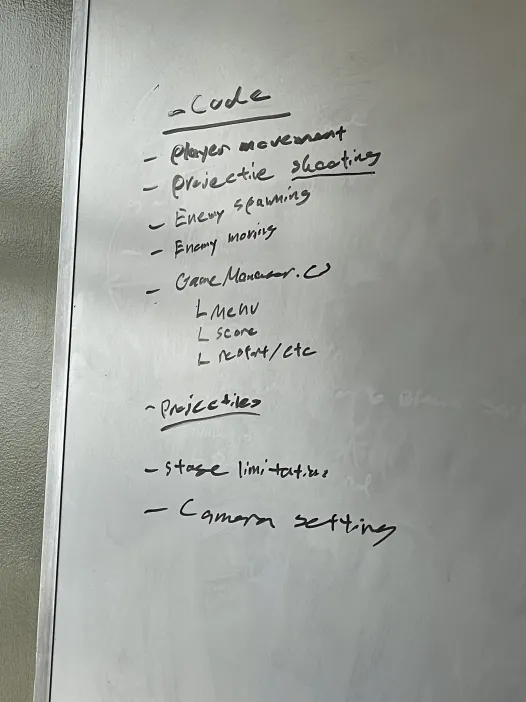 - Code
- player movement
- projectile shooting
- Enemy spawning
- Enemy moving
- Game Manager.
L Menu
L score
L restart/etc
- Projectiles
- stage limitations
- Camera setting